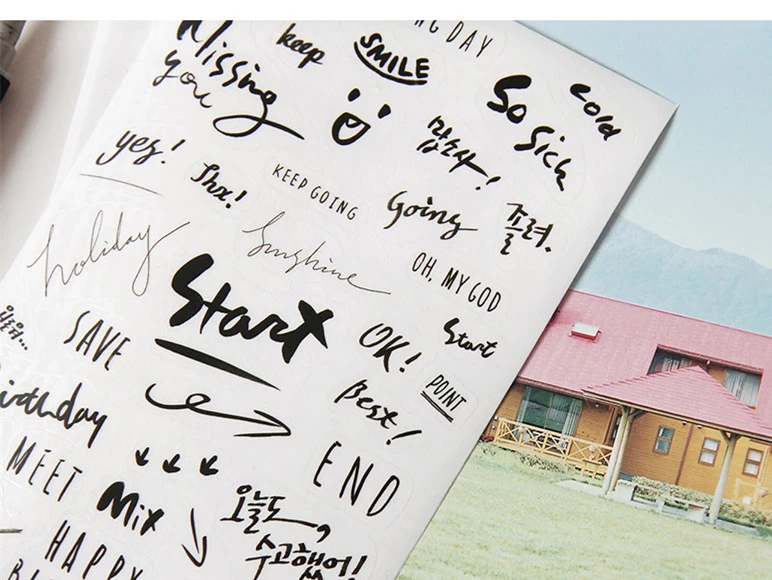 DAY
keep
SMILE
Missing
you
So Sick
cold
맙소사!
yes!
Thx!
KEEP GOING
Going
졸려.
holiday
Sunshine
OH, MY GOD
Start
Start
SAVE
OK!
POINT
Best!
Birthday
END
MEET
Mix
오늘도,
수고했어!
HAPPY